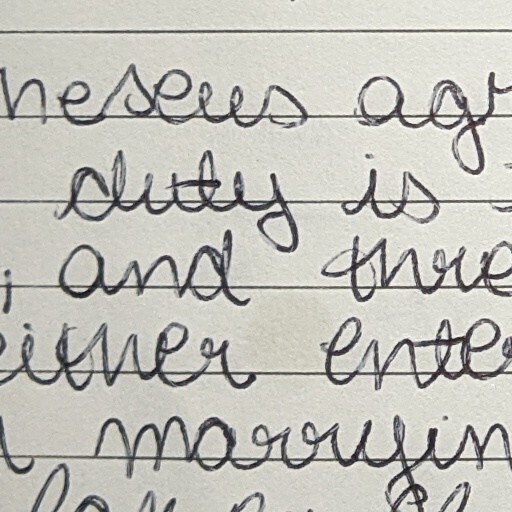 heseus agr
duty is
, and thre
either ente
marryin